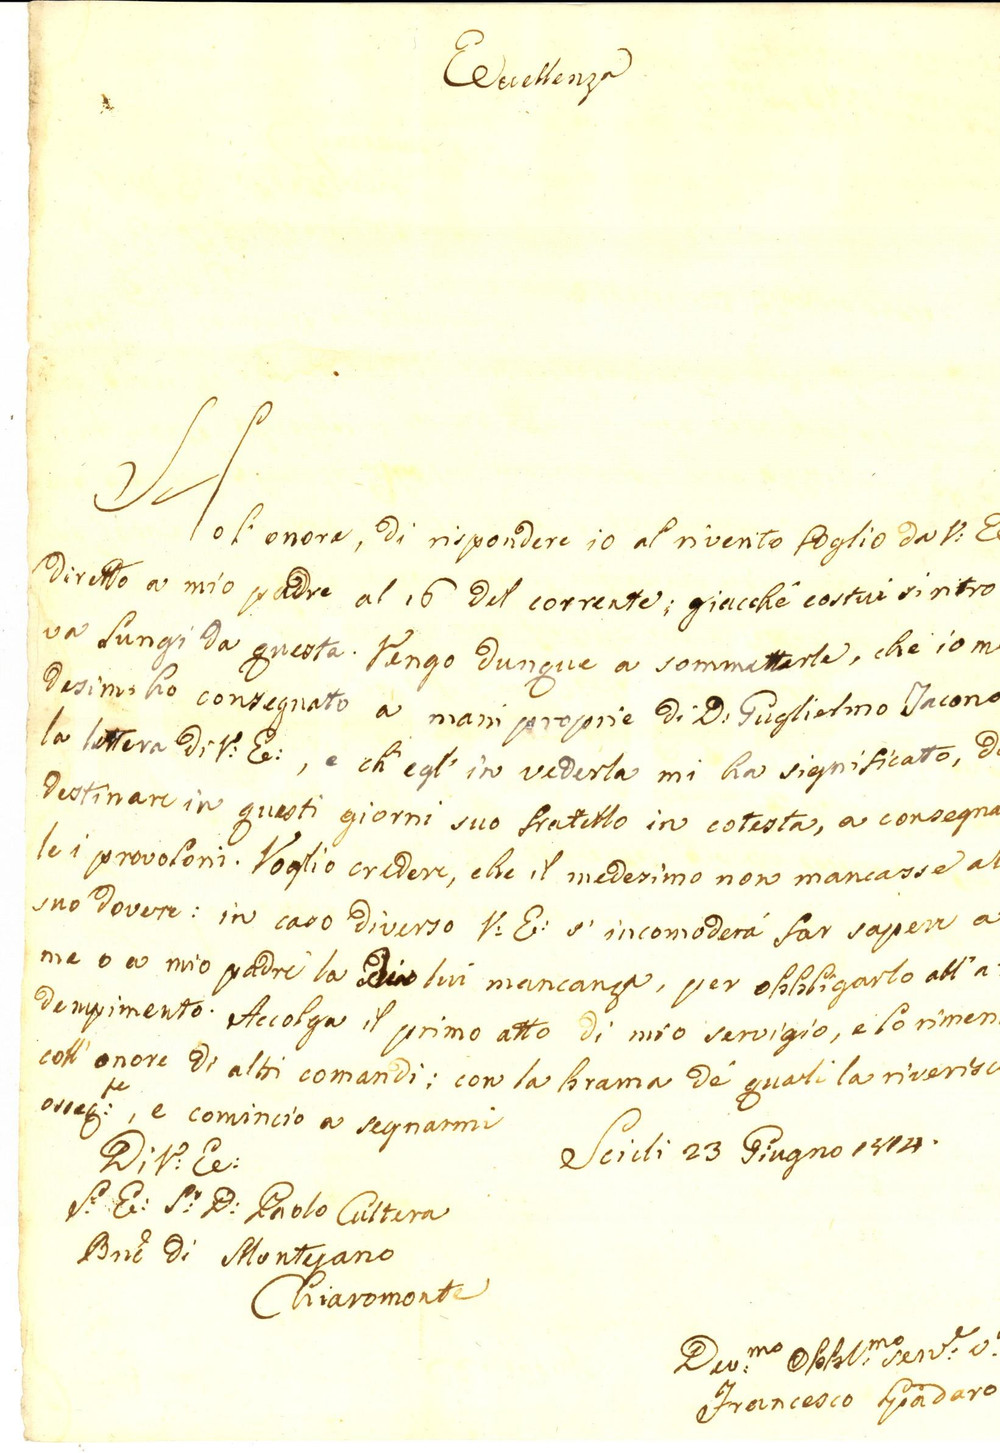 Eccellenza
Ho l'onore, di rispondere io al riverito foglio da V.ª E
diretto a mio padre al 16 del corrente; giacché costui si ritro
va lungi da questa. Vengo dunque a sommetterle, che io m
desimo ho consegnato a mani proprie di D: Guglielmo Iacono
la lettera di V.ª E:, e ch'egl' in vederla mi ha significato, d
destinare in questi giorni suo fratello in cotesta, a consegna
le i provoloni. Voglio credere, che il medesimo non mancasse al
suo dovere: in caso diverso V.ª E: s'incomoderá far sapere a
me o a mio padre la di lui mancanza, per obbligarlo all'a
dempimento. Accolga il primo atto di mio servigio, e lo rimen
coll'onore di altri comandi; con la brama de' quali la riverisc
osseq:te, e comincio a segnarmi
Di V.ª E:
Scicli 23 Giugno 1814.
S.ª E: S.r D: Paolo Cultera
Bne di Montejano
Chiaromonte
Dev:mo Obbl:mo serv:e v:
Francesco